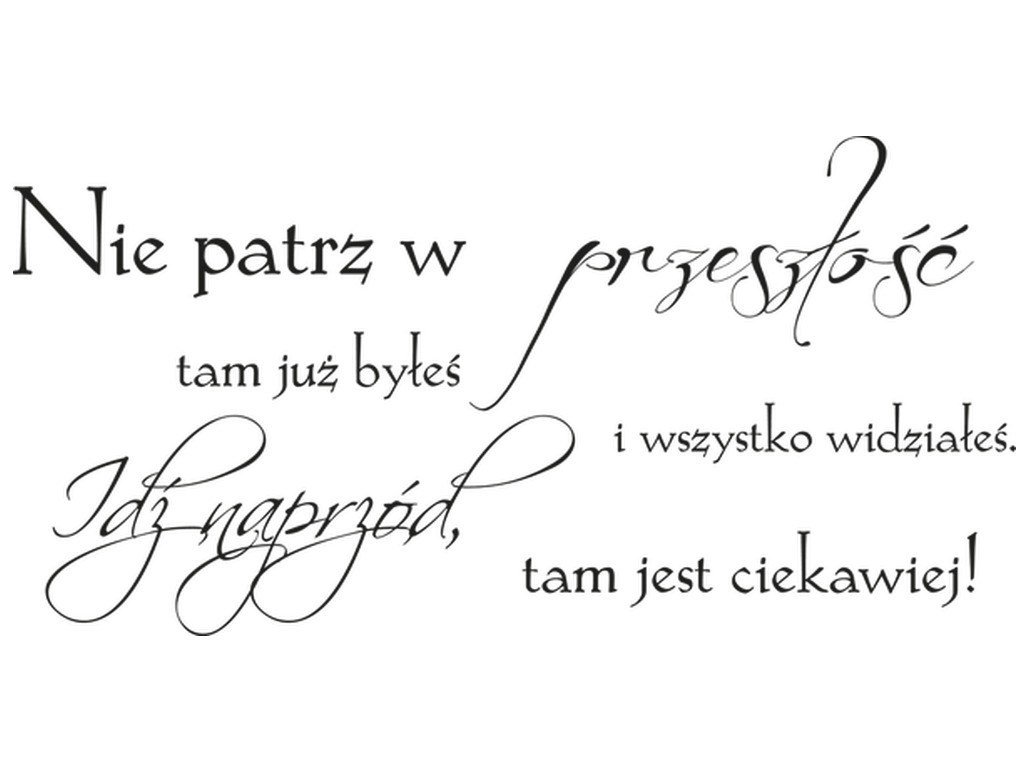 Nie patrz w przeszłość
tam już byłeś
i wszystko widziałeś.
Idź naprzód,
tam jest ciekawiej!